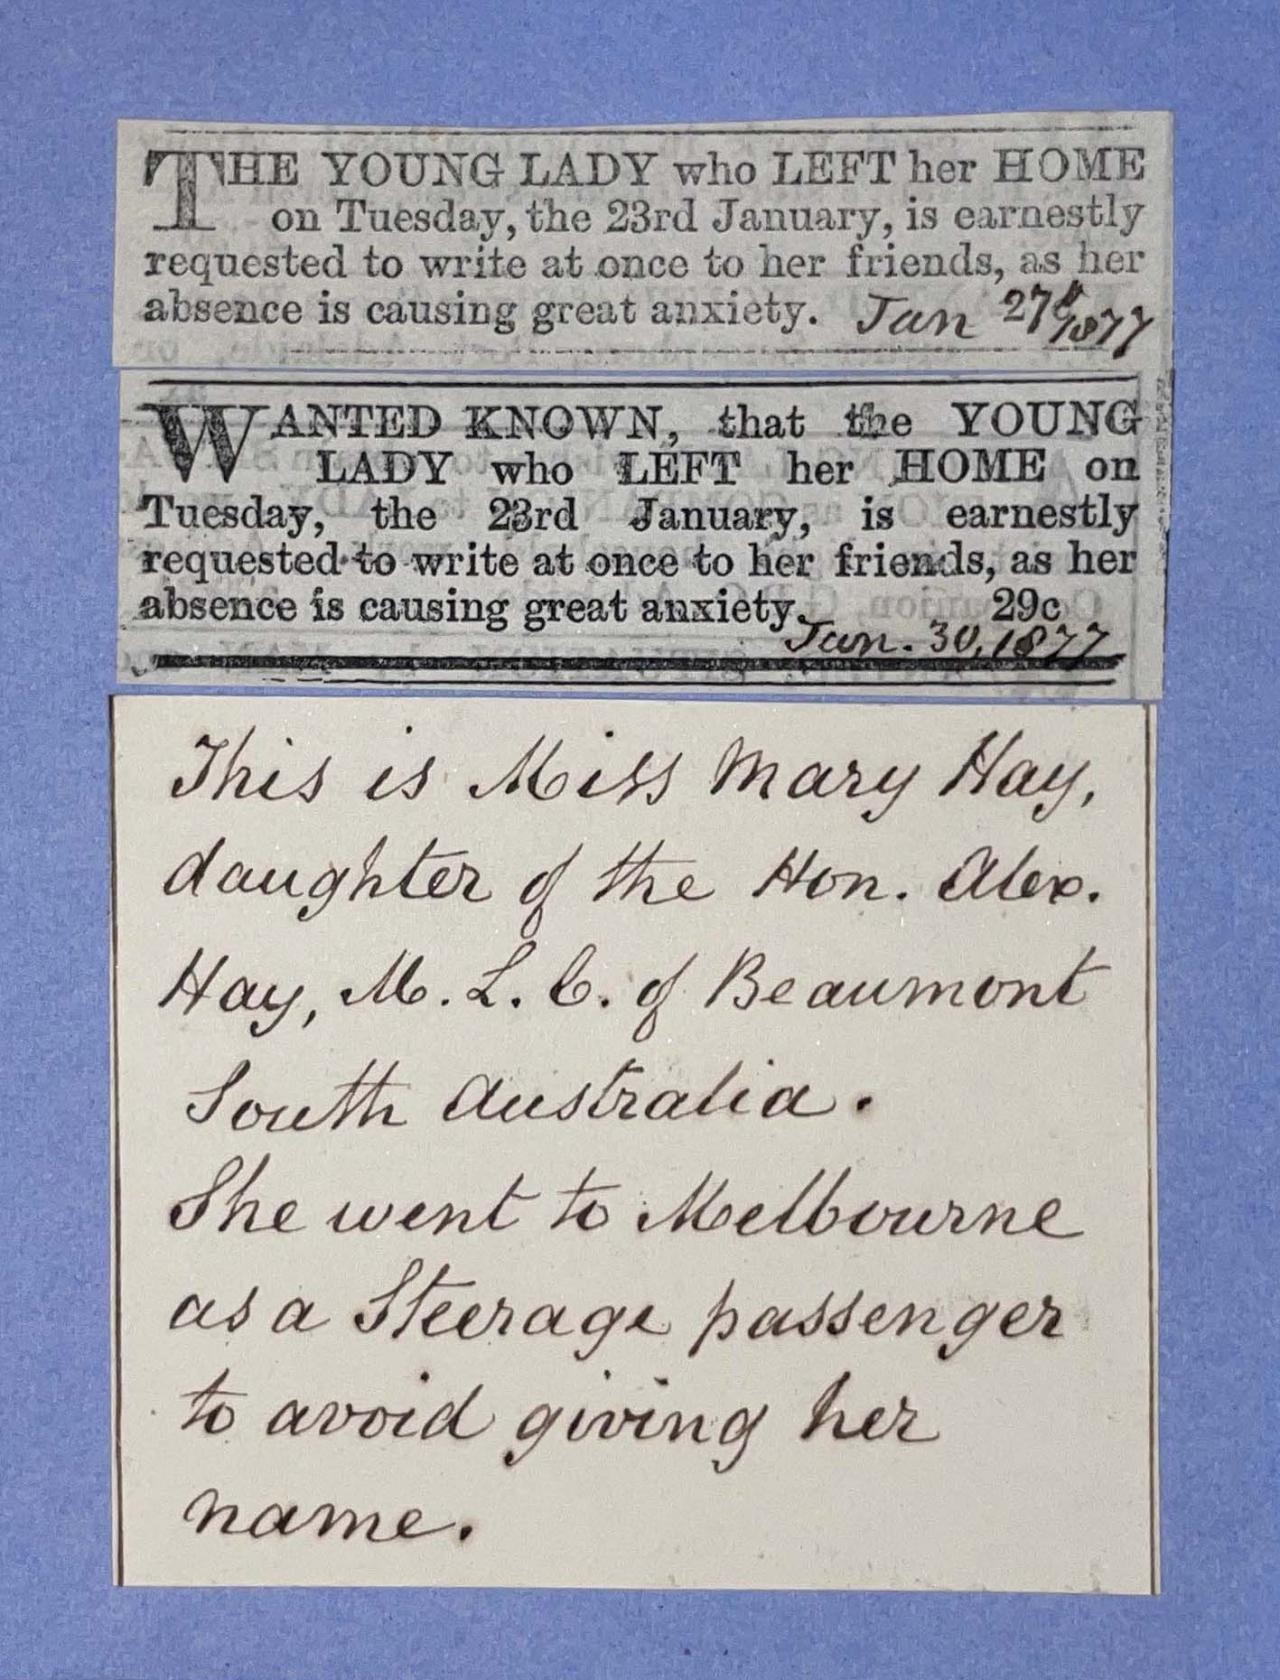 THE YOUNG LADY who LEFT her HOME
on Tuesday, the 23rd January, is earnestly
requested to write at once to her friends, as her
absence is causing great anxiety. Jan 27th/1877
WANTED KNOWN, that the YOUNG
LADY who LEFT her HOME on
Tuesday, the 23rd January, is earnestly
requested to write at once to her friends, as her
absence is causing great anxiety. 29c
Jan. 30, 1877
This is Miss Mary Hay,
daughter of the Hon. Alex.
Hay, M. L. C. of Beaumont
South Australia.
She went to Melbourne
as a Steerage passenger
to avoid giving her
name.